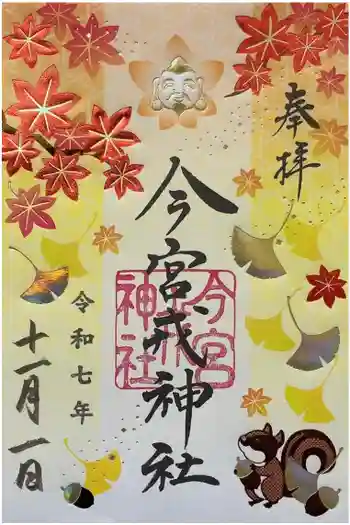 奉拝
今宮戎神社
今宮戎神社
令和七年
十一月一日